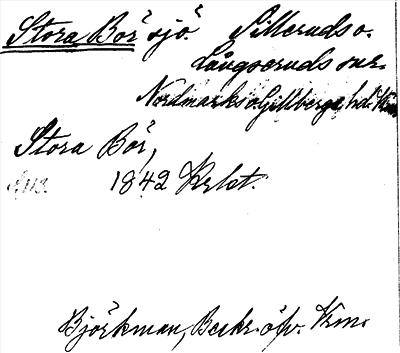 Stora Bör sjö. Silleruds o.
Långseruds snr.
Nordmarks o. Gillbergs hd. Vrm
Stora Bör,
1842 Krbet.
Björkman, Beskr. öfv. Vrm.